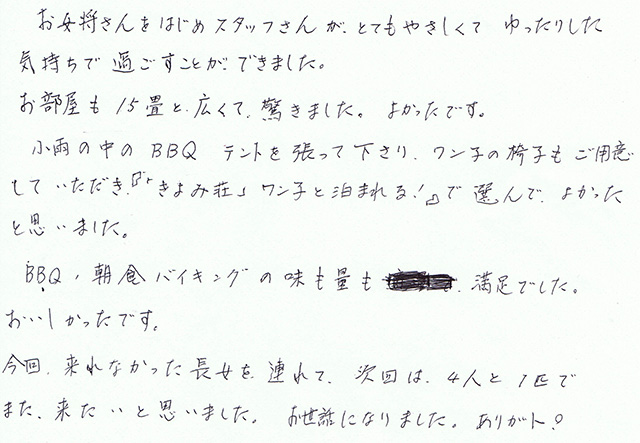 お女将さんをはじめスタッフさんが、とてもやさしくて ゆったりした
気持ちで過ごすことが、できました。
お部屋も 15畳と、広くて、驚きました。 よかったです。
小雨の中の BBQ テントを張って下さり、ワン子の椅子もご用意
していただき、『「きよみ荘」ワン子と泊まれる!』で選んで、よかった
と思いました。
BBQ、朝食バイキングの味も量も 満足でした。
おいしかったです。
今回、来れなかった長女を連れて、次回は、4人と1匹で
また、来たいと思いました。 お世話になりました。